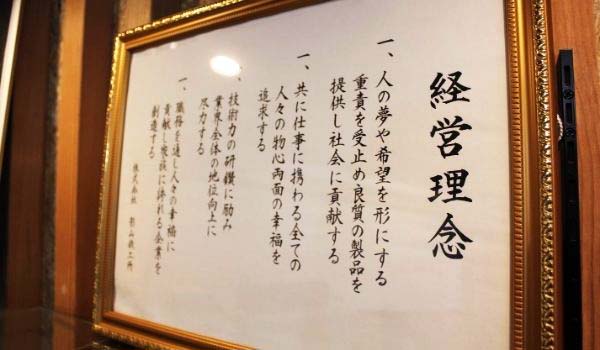 経営理念
一、人の夢や希望を形にする
重責を受止め良質の製品を
提供し社会に貢献する
一、共に仕事に携わる全ての
人々の物心両面の幸福を
追求する
一、技術力の研鑽に励み
業界全体の地位向上に
尽力する
一、職務を通し人々の幸福に
貢献し家族に誇れる企業を
創造する
株式会社 影山鉄工所